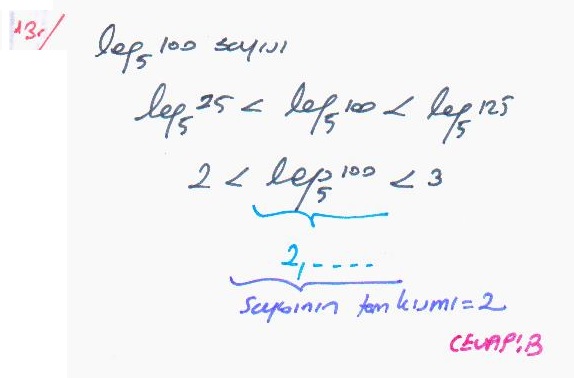 13./
log₅100 sayısı
log₅25 < log₅100 < log₅125
2 < log₅100 < 3
2,.....
sayısının tam kısmı=2
CEVAP:B